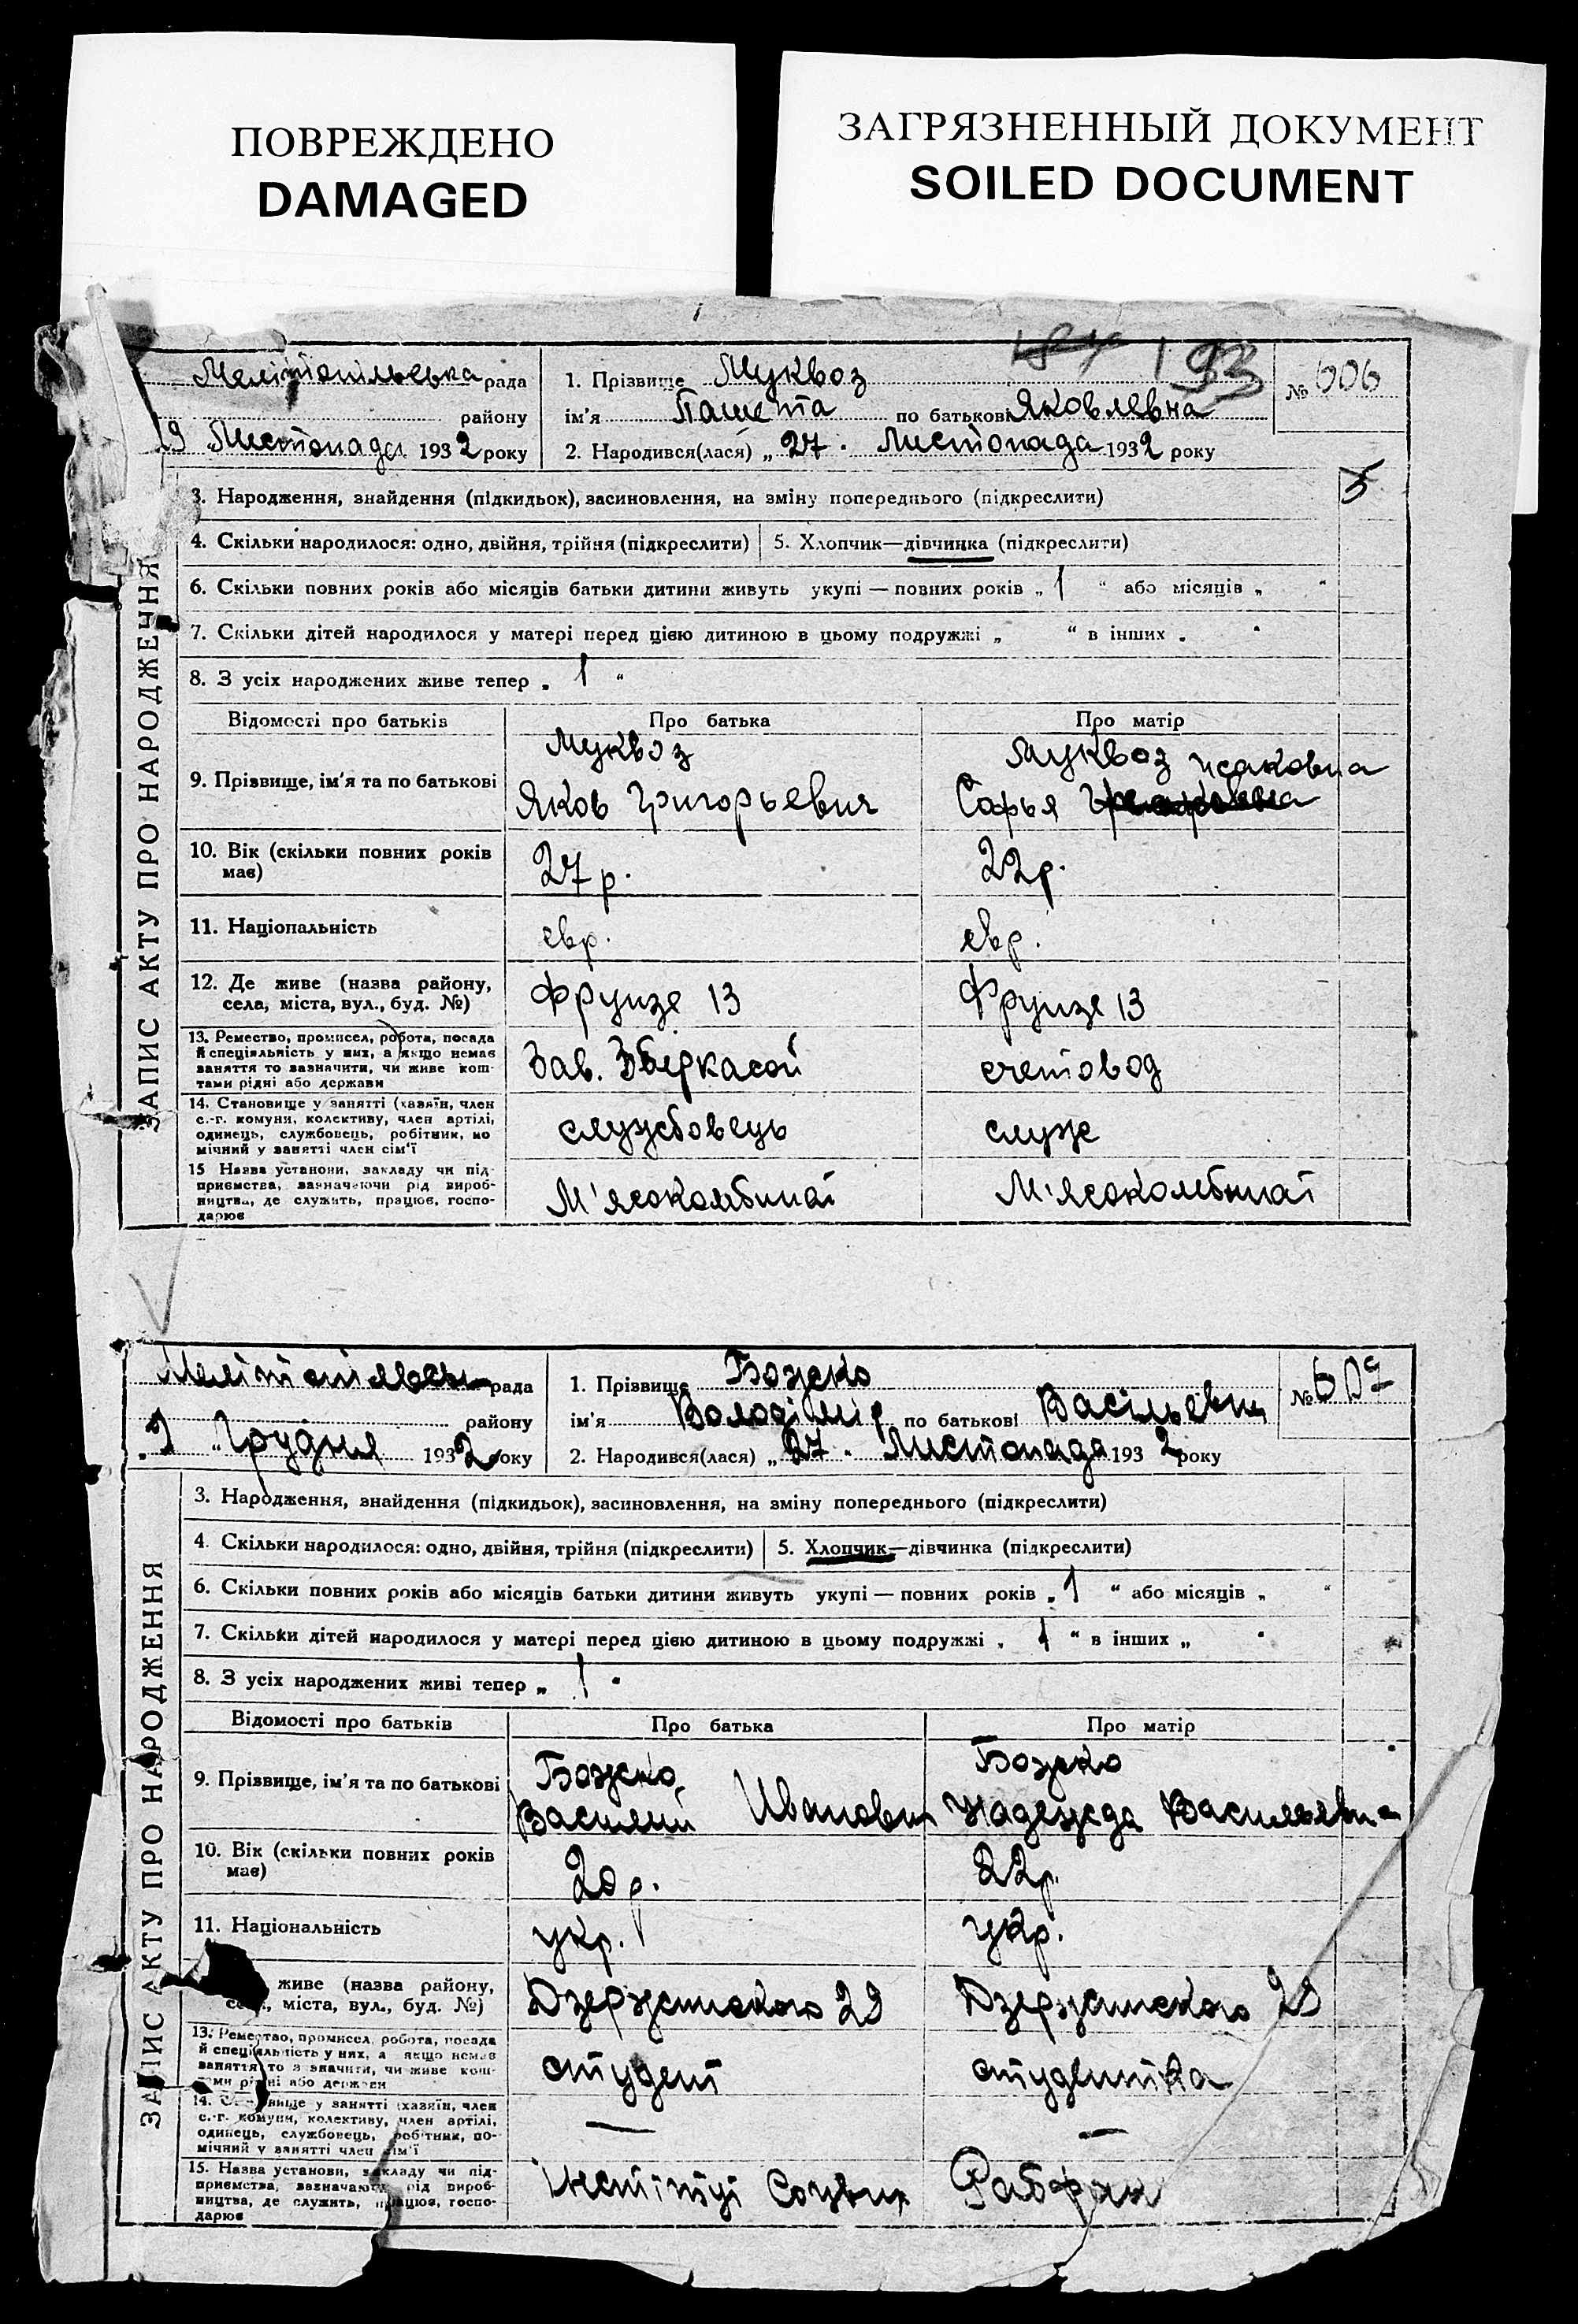 ПОВРЕЖДЕНО
DAMAGED
ЗАГРЯЗНЕННЫЙ ДОКУМЕНТ
SOILED DOCUMENT
193
Мелітопільська рада
району
29 Листопада 1932 року
1. Прізвище Муквоз
ім'я по батькові Яковлевна
2. Народився(лася) „ 27 " Листопада 1932 року
№ 606
ЗАПИС АКТУ ПРО НАРОДЖЕННЯ
3. Народження, знайдення (підкидьок), засиновлення, на зміну попереднього (підкреслити)
4. Скільки народилося: одно, двійня, трійня (підкреслити) 5. Хлопчик—дівчинка (підкреслити)
6. Скільки повних років або місяців батьки дитини живуть укупі — повних років „ 1 " або місяців „ "
7. Скільки дітей народилося у матері перед цією дитиною в цьому подружжі „ " в інших „ "
8. З усіх народжених живе тепер „ 1 "
Відомості про батьків Про батька Про матір
9. Прізвище, ім'я та по батькові
Муквоз
Яков Григорьевич
Муквоз Исаковна
Софья
10. Вік (скільки повних років має)
27 р. 22 р.
11. Національність
евр. евр.
12. Де живе (назва району, села, міста, вул., буд. №)
Фрунзе 13 Фрунзе 13
13. Ремество, промисел, робота, посада
й спеціяльність у них, а якщо немає
заняття то зазначити, чи живе кош-
тами рідні або держави
Зав. Зберкасой счетовод
14. Становище у занятті (хазяїн, член
с.-г. комуни, колективу, член артілі,
одинець, службовець, робітник, по
мічний у занятті член сім'ї
службовець служ
15 Назва установи, закладу чи під-
приємства, зазначаючи рід вироб-
ництва, де служить, працює, госпо-
дарює
М'ясокомбинат М'ясокомбинат
рада
району
2 „ Грудня 1932 року
1. Прізвище Божко
ім'я Володімір по батькові Васільевич
2. Народився(лася) „ 27 " Листопада 1932 року
№ 607
ЗАПИС АКТУ ПРО НАРОДЖЕННЯ
3. Народження, знайдення (підкидьок), засиновлення, на зміну попереднього (підкреслити)
4. Скільки народилося: одно, двійня, трійня (підкреслити) 5. Хлопчик—дівчинка (підкреслити)
6. Скільки повних років або місяців батьки дитини живуть укупі — повних років „ 1 " або місяців „ "
7. Скільки дітей народилося у матері перед цією дитиною в цьому подружжі „ 1 " в інших „ "
8. З усіх народжених живі тепер „ 1 "
Відомості про батьків Про батька Про матір
9. Прізвище, ім'я та по батькові
Божко
Василий Иванович
Божко
Надежда Васильевна
10. Вік (скільки повних років має)
20 р. 22 р.
11. Національність
укр. укр.
живе (назва району,
міста, вул., буд. №)
Дзержинского 29 Дзержинского 29
13. Ремество, промисел, робота, посада
й спеціяльність у них, а якщо немає
заняття то зазначити, чи живе кош-
тами рідні або держави
студент студентка
14. Становище у занятті (хазяїн, член
с.-г. комуни, колективу, член артілі,
одинець, службовець, робітник, по-
мічний у занятті член сім'ї
— —
15. Назва установи, закладу чи під-
приємства, зазначаючи рід вироб-
ництва, де служить, працює, госпо-
дарює
Інстітут Соцвих Рабфак